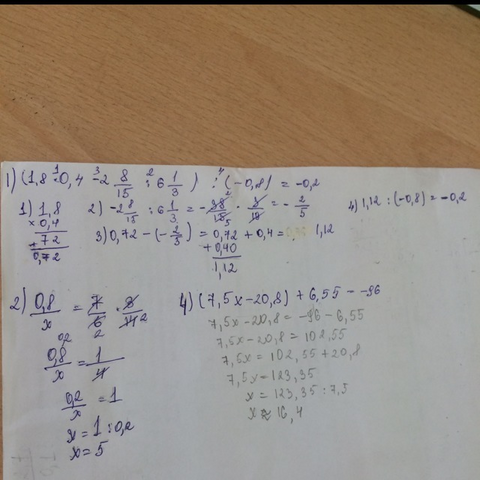 1) (1,8 · 0,4 - 2 8/15 : 6 1/3) : (-0,8) = -0,2
1) 1,8
× 0,4
72
+
0,72
2) -2 8/15 : 6 1/3 = - 38/15 · 3/19 = - 2/5
3) 0,72 - (- 2/5) = 0,72 + 0,4 = 1,12
+ 0,40
1,12
4) 1,12 : (-0,8) = -0,2
2) 0,8/x = 7/6 · 3/14
0,8/x = 1/4
0,2/x = 1
x = 1 : 0,2
x = 5
4) (7,5x - 20,8) + 6,55 = -96
7,5x - 20,8 = -96 - 6,55
7,5x - 20,8 = 102,55
7,5x = 102,55 + 20,8
7,5x = 123,35
x = 123,35 : 7,5
x ≈ 16,4